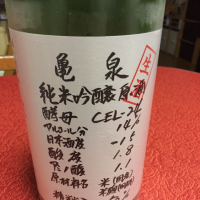 亀泉
生酒
純米吟醸原酒
酵母 CEL-24
アルコール分 14.
日本酒度 -1
酸度 1.8
アミノ酸 1.1
原材料名 米(国産)